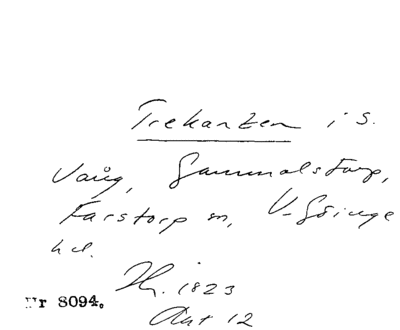 Trekanten i S.
Vång, Gammalstorp,
Farstorp sn, V-Göinge
hd.
Hr. 1823
Akt 12
Nr 8094.